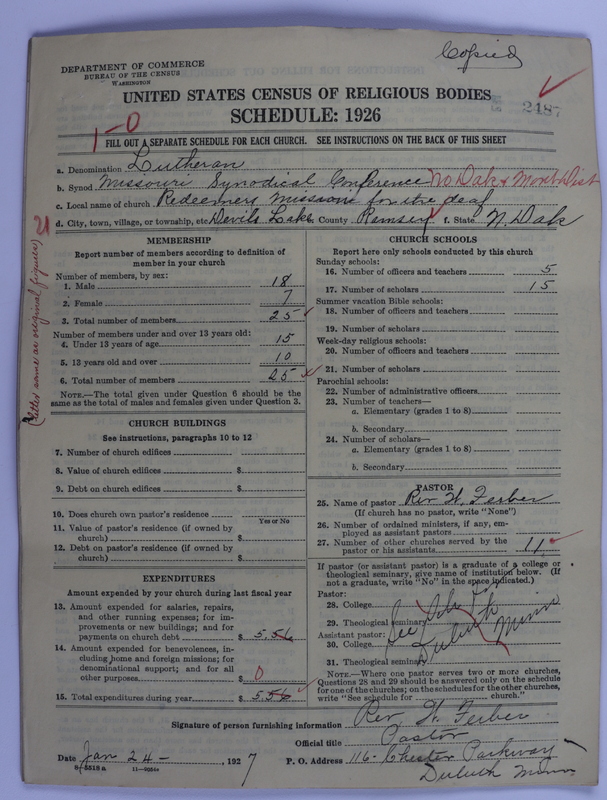 Copied
DEPARTMENT OF COMMERCE
BUREAU OF THE CENSUS
WASHINGTON
UNITED STATES CENSUS OF RELIGIOUS BODIES
SCHEDULE: 1926
2487
1-0
FILL OUT A SEPARATE SCHEDULE FOR EACH CHURCH. SEE INSTRUCTIONS ON THE BACK OF THIS SHEET
a. Denomination Lutheran
b. Synod Missouri Synodical Conference No Dak & Mont Dist
c. Local name of church Redeemers Missions for the deaf
d. City, town, village, or township, etc Devils Lake e. County Ramsey f. State N. Dak
21
(Letter same as original figures)
MEMBERSHIP
Report number of members according to definition of
member in your church
Number of members, by sex:
1. Male 18
2. Female 7
3. Total number of members 25
Number of members under and over 13 years old:
4. Under 13 years of age 15
5. 13 years old and over 10
6. Total number of members 25
NOTE.—The total given under Question 6 should be
same as the total of males and females given under Question 3.
CHURCH BUILDINGS
See instructions, paragraphs 10 to 12
7. Number of church edifices
8. Value of church edifices $
9. Debt on church edifices $
10. Does church own pastor's residence
Yes or No
11. Value of pastor's residence (if owned by
church) $
12. Debt on pastor's residence (if owned by
church) $
EXPENDITURES
Amount expended by your church during last fiscal year
13. Amount expended for salaries, repairs,
and other running expenses; for im-
provements or new buildings; and for
payments on church debt $ 5.56
14. Amount expended for benevolences, in-
cluding home and foreign missions; for
denominational support; and for all
other purposes $ 0
15. Total expenditures during year $ 5.56
CHURCH SCHOOLS
Report here only schools conducted by this church
Sunday schools:
16. Number of officers and teachers 5
17. Number of scholars 15
Summer vacation Bible schools:
18. Number of officers and teachers
19. Number of scholars
Week-day religious schools:
20. Number of officers and teachers
21. Number of scholars
Parochial schools:
22. Number of administrative officers
23. Number of teachers—
a. Elementary (grades 1 to 8)
b. Secondary
24. Number of scholars—
a. Elementary (grades 1 to 8)
b. Secondary
PASTOR
25. Name of pastor Rev W. Ferber
(If church has no pastor, write "None")
26. Number of ordained ministers, if any, em-
ployed as assistant pastors
27. Number of other churches served by the
pastor or his assistants 11
If pastor (or assistant pastor) is a graduate of a college or
theological seminary, give name of institution below. (If
not a graduate, write "No" in the space indicated.)
Pastor:
28. College
29. Theological seminary
Assistant pastor:
30. College
31. Theological seminary
See Sche for
Duluth Minn
NOTE.—Where one pastor serves two or more churches,
Questions 28 and 29 should be answered only on the schedule
for one of the churches; on the schedules for the other churches,
write "See schedule for church."
Signature of person furnishing information Rev W. Ferber
Official title Pastor
Date Jan 24- , 1927 P. O. Address 116- Chester Parkway
8-5518 a 11-9064a
Duluth Minn